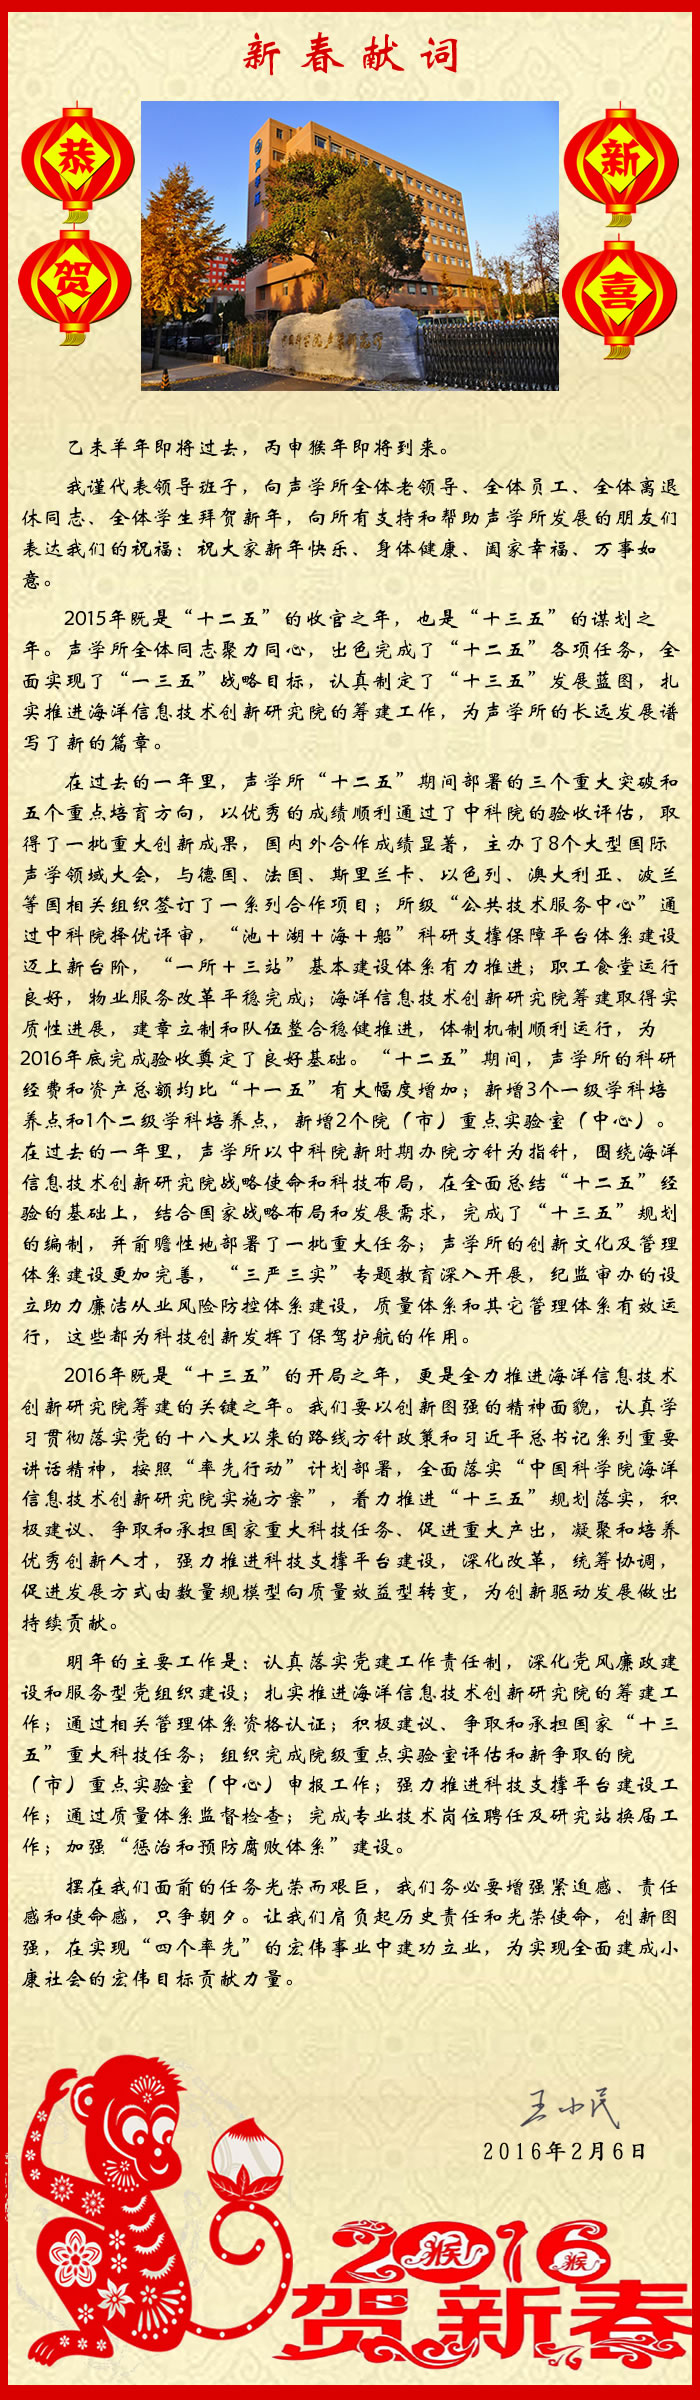 新春献词
恭
新
贺
喜
声学所
中国科学院声学研究所
乙未羊年即将过去，丙申猴年即将到来。
我谨代表领导班子，向声学所全体老领导、全体员工、全体离退
休同志、全体学生拜贺新年，向所有支持和帮助声学所发展的朋友们
表达我们的祝福：祝大家新年快乐、身体健康、阖家幸福、万事如
意。
2015年既是“十二五”的收官之年，也是“十三五”的谋划之
年。声学所全体同志聚力同心，出色完成了“十二五”各项任务，全
面实现了“一三五”战略目标，认真制定了“十三五”发展蓝图，扎
实推进海洋信息技术创新研究院的筹建工作，为声学所的长远发展谱
写了新的篇章。
在过去的一年里，声学所“十二五”期间部署的三个重大突破和
五个重点培育方向，以优秀的成绩顺利通过了中科院的验收评估，取
得了一批重大创新成果，国内外合作成绩显著，主办了8个大型国际
声学领域大会，与德国、法国、斯里兰卡、以色列、澳大利亚、波兰
等国相关组织签订了一系列合作项目；所级“公共技术服务中心”通
过中科院择优评审，“池＋湖＋海＋船”科研支撑保障平台体系建设
迈上新台阶，“一所＋三站”基本建设体系有力推进；职工食堂运行
良好，物业服务改革平稳完成；海洋信息技术创新研究院筹建取得实
质性进展，建章立制和队伍整合稳健推进，体制机制顺利运行，为
2016年底完成验收奠定了良好基础。“十二五”期间，声学所的科研
经费和资产总额均比“十一五”有大幅度增加；新增3个一级学科培
养点和1个二级学科培养点，新增2个院（市）重点实验室（中心）。
在过去的一年里，声学所以中科院新时期办院方针为指针，围绕海洋
信息技术创新研究院战略使命和科技布局，在全面总结“十二五”经
验的基础上，结合国家战略布局和发展需求，完成了“十三五”规划
的编制，并前瞻性地部署了一批重大任务；声学所的创新文化及管理
体系建设更加完善，“三严三实”专题教育深入开展，纪监审办的设
立助力廉洁从业风险防控体系建设，质量体系和其它管理体系有效运
行，这些都为科技创新发挥了保驾护航的作用。
2016年既是“十三五”的开局之年，更是全力推进海洋信息技术
创新研究院筹建的关键之年。我们要以创新图强的精神面貌，认真学
习贯彻落实党的十八大以来的路线方针政策和习近平总书记系列重要
讲话精神，按照“率先行动”计划部署，全面落实“中国科学院海洋
信息技术创新研究院实施方案”，着力推进“十三五”规划落实，积
极建议、争取和承担国家重大科技任务、促进重大产出，凝聚和培养
优秀创新人才，强力推进科技支撑平台建设，深化改革，统筹协调，
促进发展方式由数量规模型向质量效益型转变，为创新驱动发展做出
持续贡献。
明年的主要工作是：认真落实党建工作责任制，深化党风廉政建
设和服务型党组织建设；扎实推进海洋信息技术创新研究院的筹建工
作；通过相关管理体系资格认证；积极建议、争取和承担国家“十三
五”重大科技任务；组织完成院级重点实验室评估和新争取的院
（市）重点实验室（中心）申报工作；强力推进科技支撑平台建设工
作；通过质量体系监督检查；完成专业技术岗位聘任及研究站换届工
作；加强“惩治和预防腐败体系”建设。
摆在我们面前的任务光荣而艰巨，我们务必要增强紧迫感、责任
感和使命感，只争朝夕。让我们肩负起历史责任和光荣使命，创新图
强，在实现“四个率先”的宏伟事业中建功立业，为实现全面建成小
康社会的宏伟目标贡献力量。
王小民
2016年2月6日
2016
猴
猴
贺新春